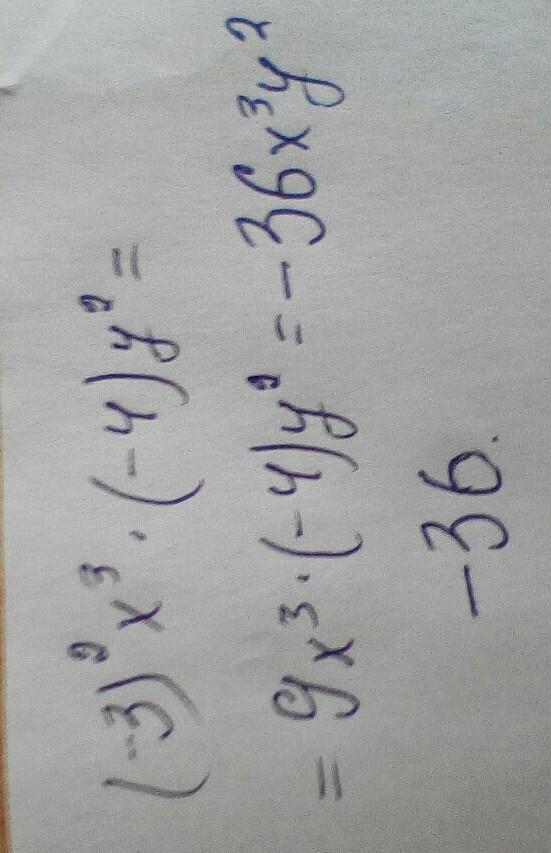 (-3)²x³·(-4)y²=
=9x³·(-4)y²=-36x³y²
-36.